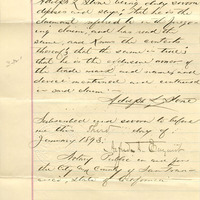 being duly sworn
deposes and says; That he is the
claimant referred to in the foregoing
claim, and has read the
same and knows the contents
thereof; that the same is true;
that he is the exclusive owner of
the trade mark and names, and
device mentioned and contained
in said claim.
Subscribed and sworn to before
me this third day of
January 1893.
Notary Public in and for
the City and County of San Francisco,
State of California